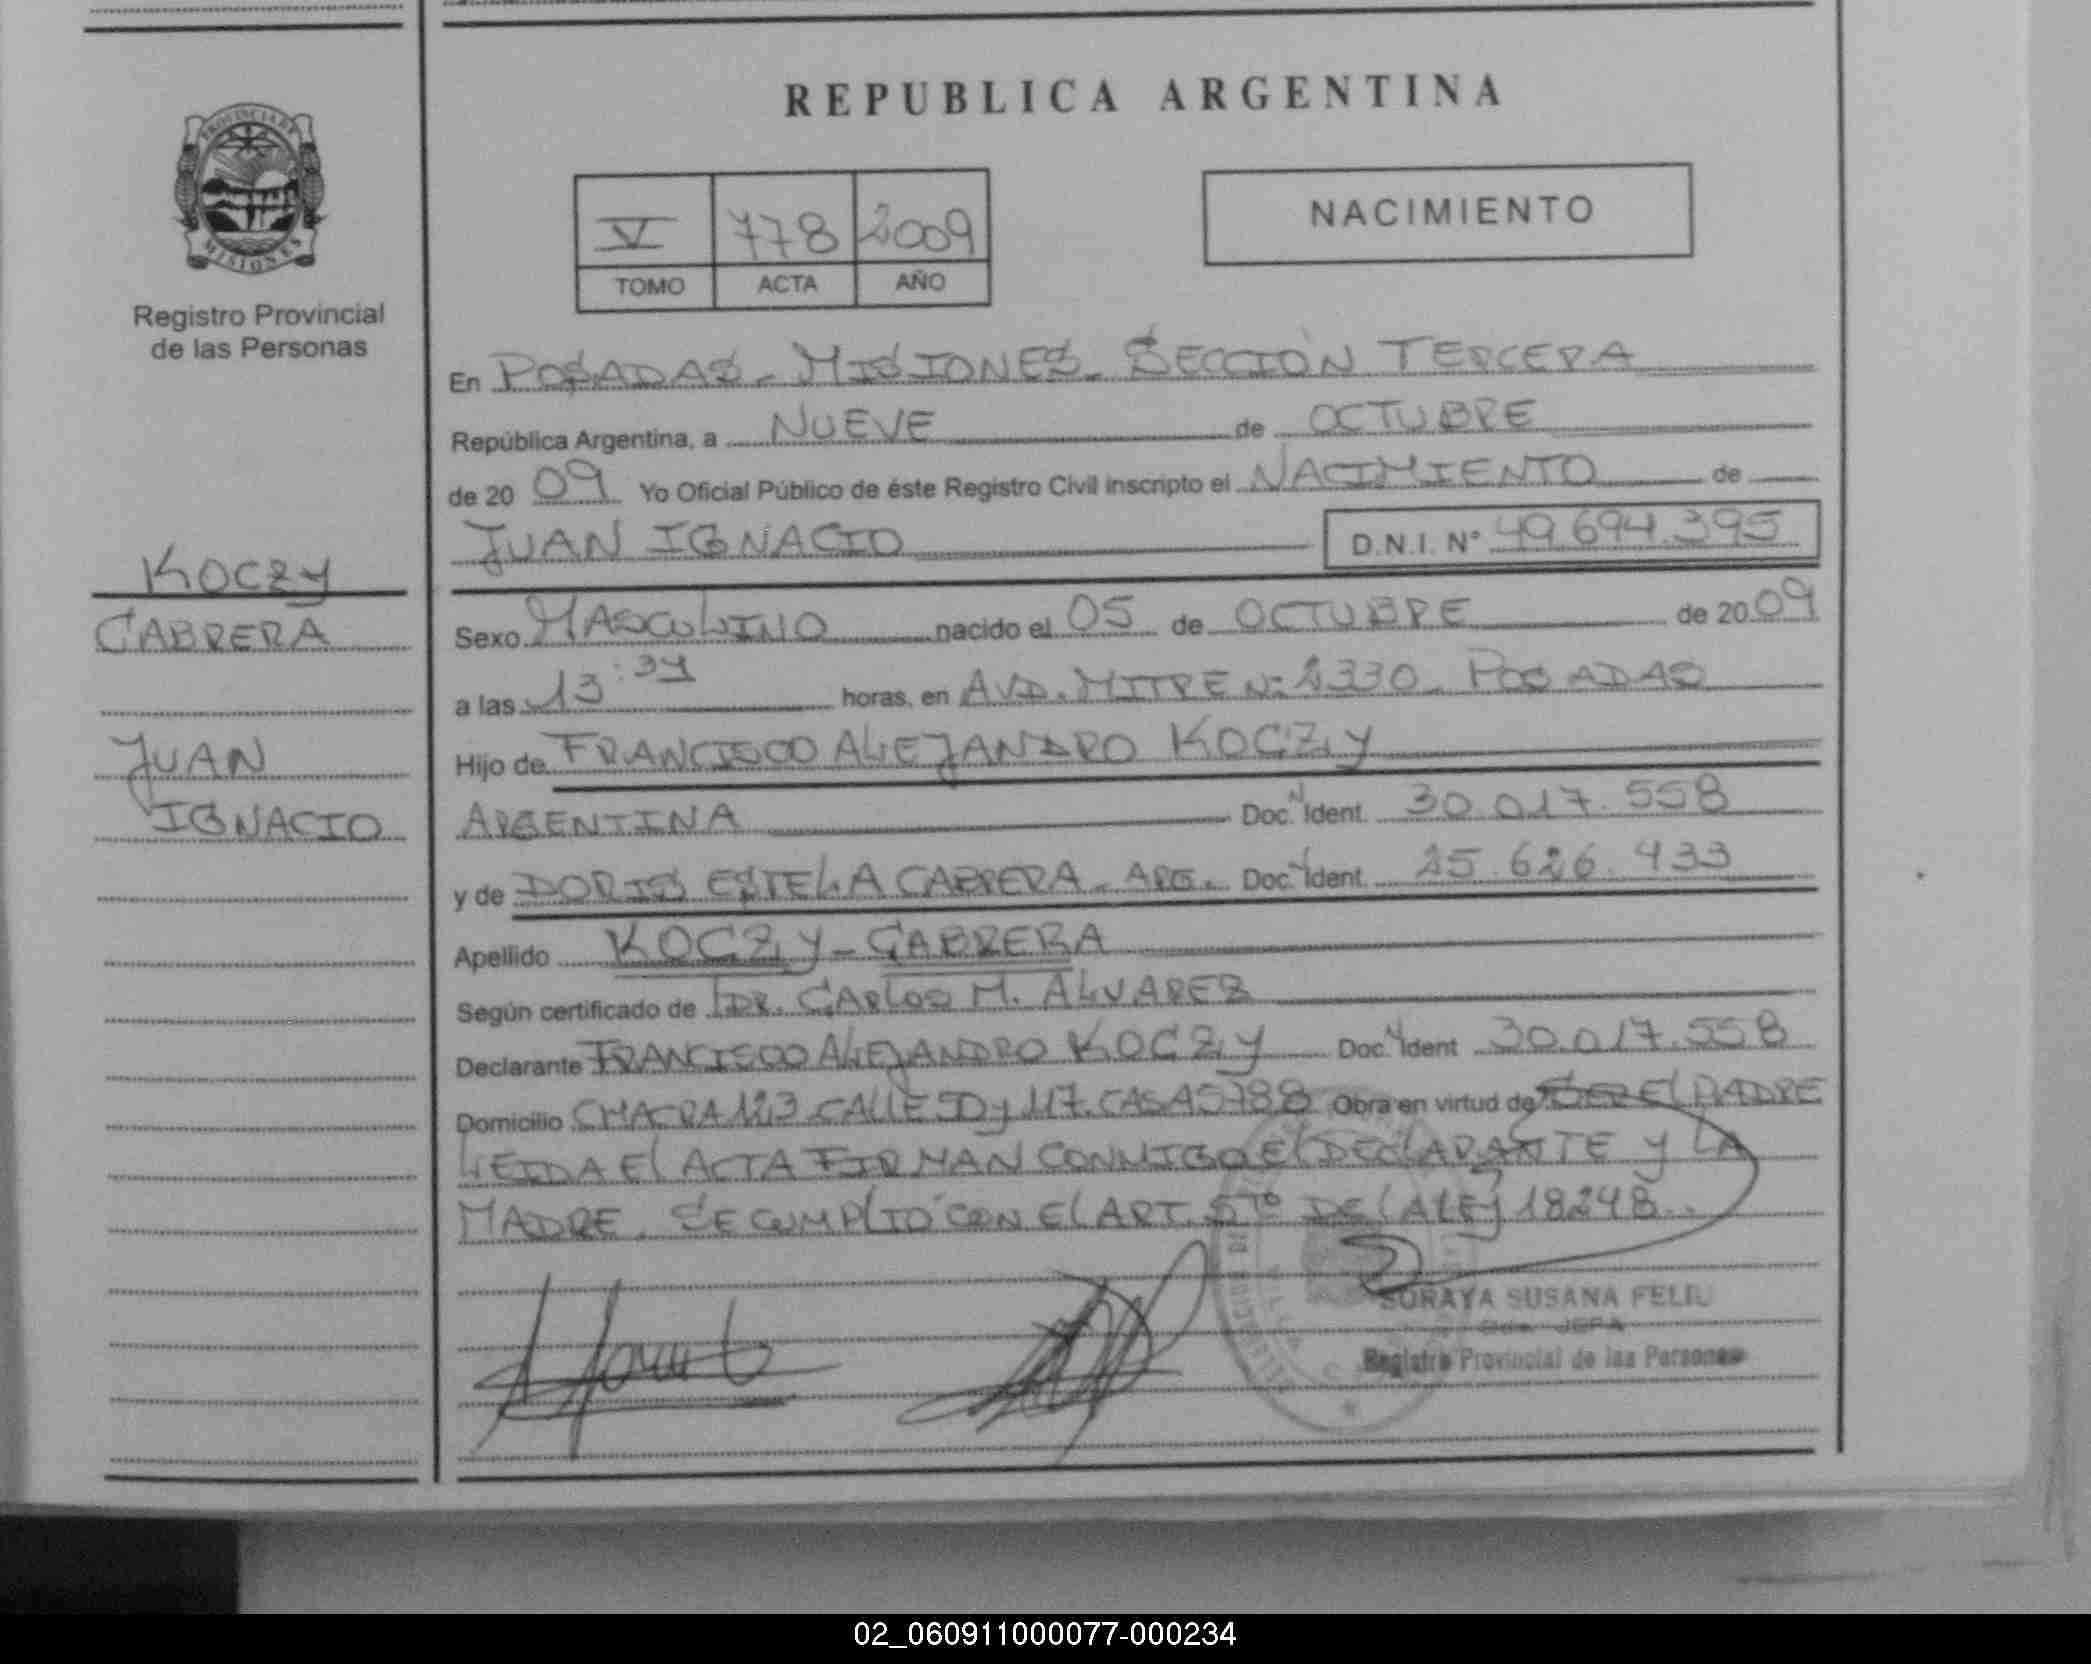 REPUBLICA ARGENTINA
PROVINCIA DE
MISIONES
Registro Provincial
de las Personas
V 778 2009
TOMO ACTA AÑO
NACIMIENTO
En POSADAS - MISIONES - SECCION TERCERA
República Argentina, a NUEVE de OCTUBRE
de 20 09 Yo Oficial Público de éste Registro Civil inscripto el NACIMIENTO de
JUAN IGNACIO D.N.I. N° 49.694.395
KOCZY
CABRERA
JUAN
IGNACIO
Sexo MASCULINO nacido el 05 de OCTUBRE de 20 09
a las 13:34 horas, en AVD. MITRE N: 2330 - POSADAS
Hijo de FRANCISCO ALEJANDRO KOCZY
ARGENTINA Doc. N Ident. 30.017.558
y de DORIS ESTELA CABRERA - ARG. Doc. N Ident. 25.626.433
Apellido KOCZY - CABRERA
Según certificado de DR. CARLOS M. ALVAREZ
Declarante FRANCISCO ALEJANDRO KOCZY Doc. N Ident 30.017.558
Domicilio CHACRA 123 CALLE 50 y 117. CASA 5788 Obra en virtud de SER EL PADRE
LEIDA EL ACTA FIRMAN CONMIGO EL DECLARANTE Y LA
MADRE. SE CUMPLIO CON EL ART. 5TO DE LA LEY 18248..
SORAYA SUSANA FELIU
JEFA
Registro Provincial de las Personas
02_060911000077-000234